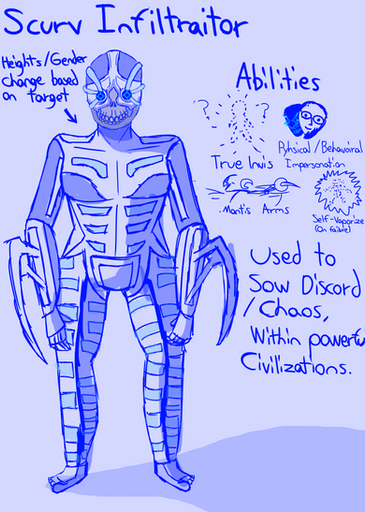 Scurv Infiltraitor
Heights/Gender
change based
on target
Abilities
? ?
True Invis
Pyhsical/Behavoiral
Impersonation
Mantis Arms
Self-Vaporize
(On failure)
Used to
Sow Discord
/Chaos,
Within powerful
Civilizations.